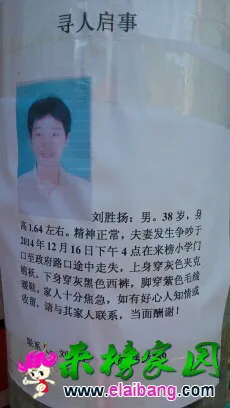 寻人启事
刘胜扬：男。38岁，身
高1.64左右。精神正常，夫妻发生争吵于
2014年12月16日下午4点在来榜小学门
口至政府路口途中走失，上身穿灰色夹克
棉袄，下身穿灰黑色西裤，脚穿紫色毛线
腰鞋，家人十分焦急，如有好心人知情或
收留，请与其家人联系，当面酬谢！
联系
来榜家园
www.elaibang.com